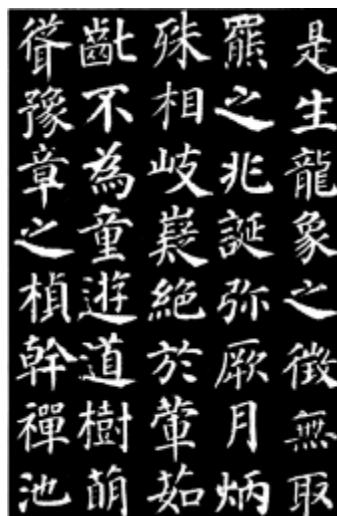 是生龍象之徵無取
羆之兆誕弥厥月炳
殊相岐嶷絶於葷茹
齔不為童遊道樹萌
聳豫章之楨幹禪池